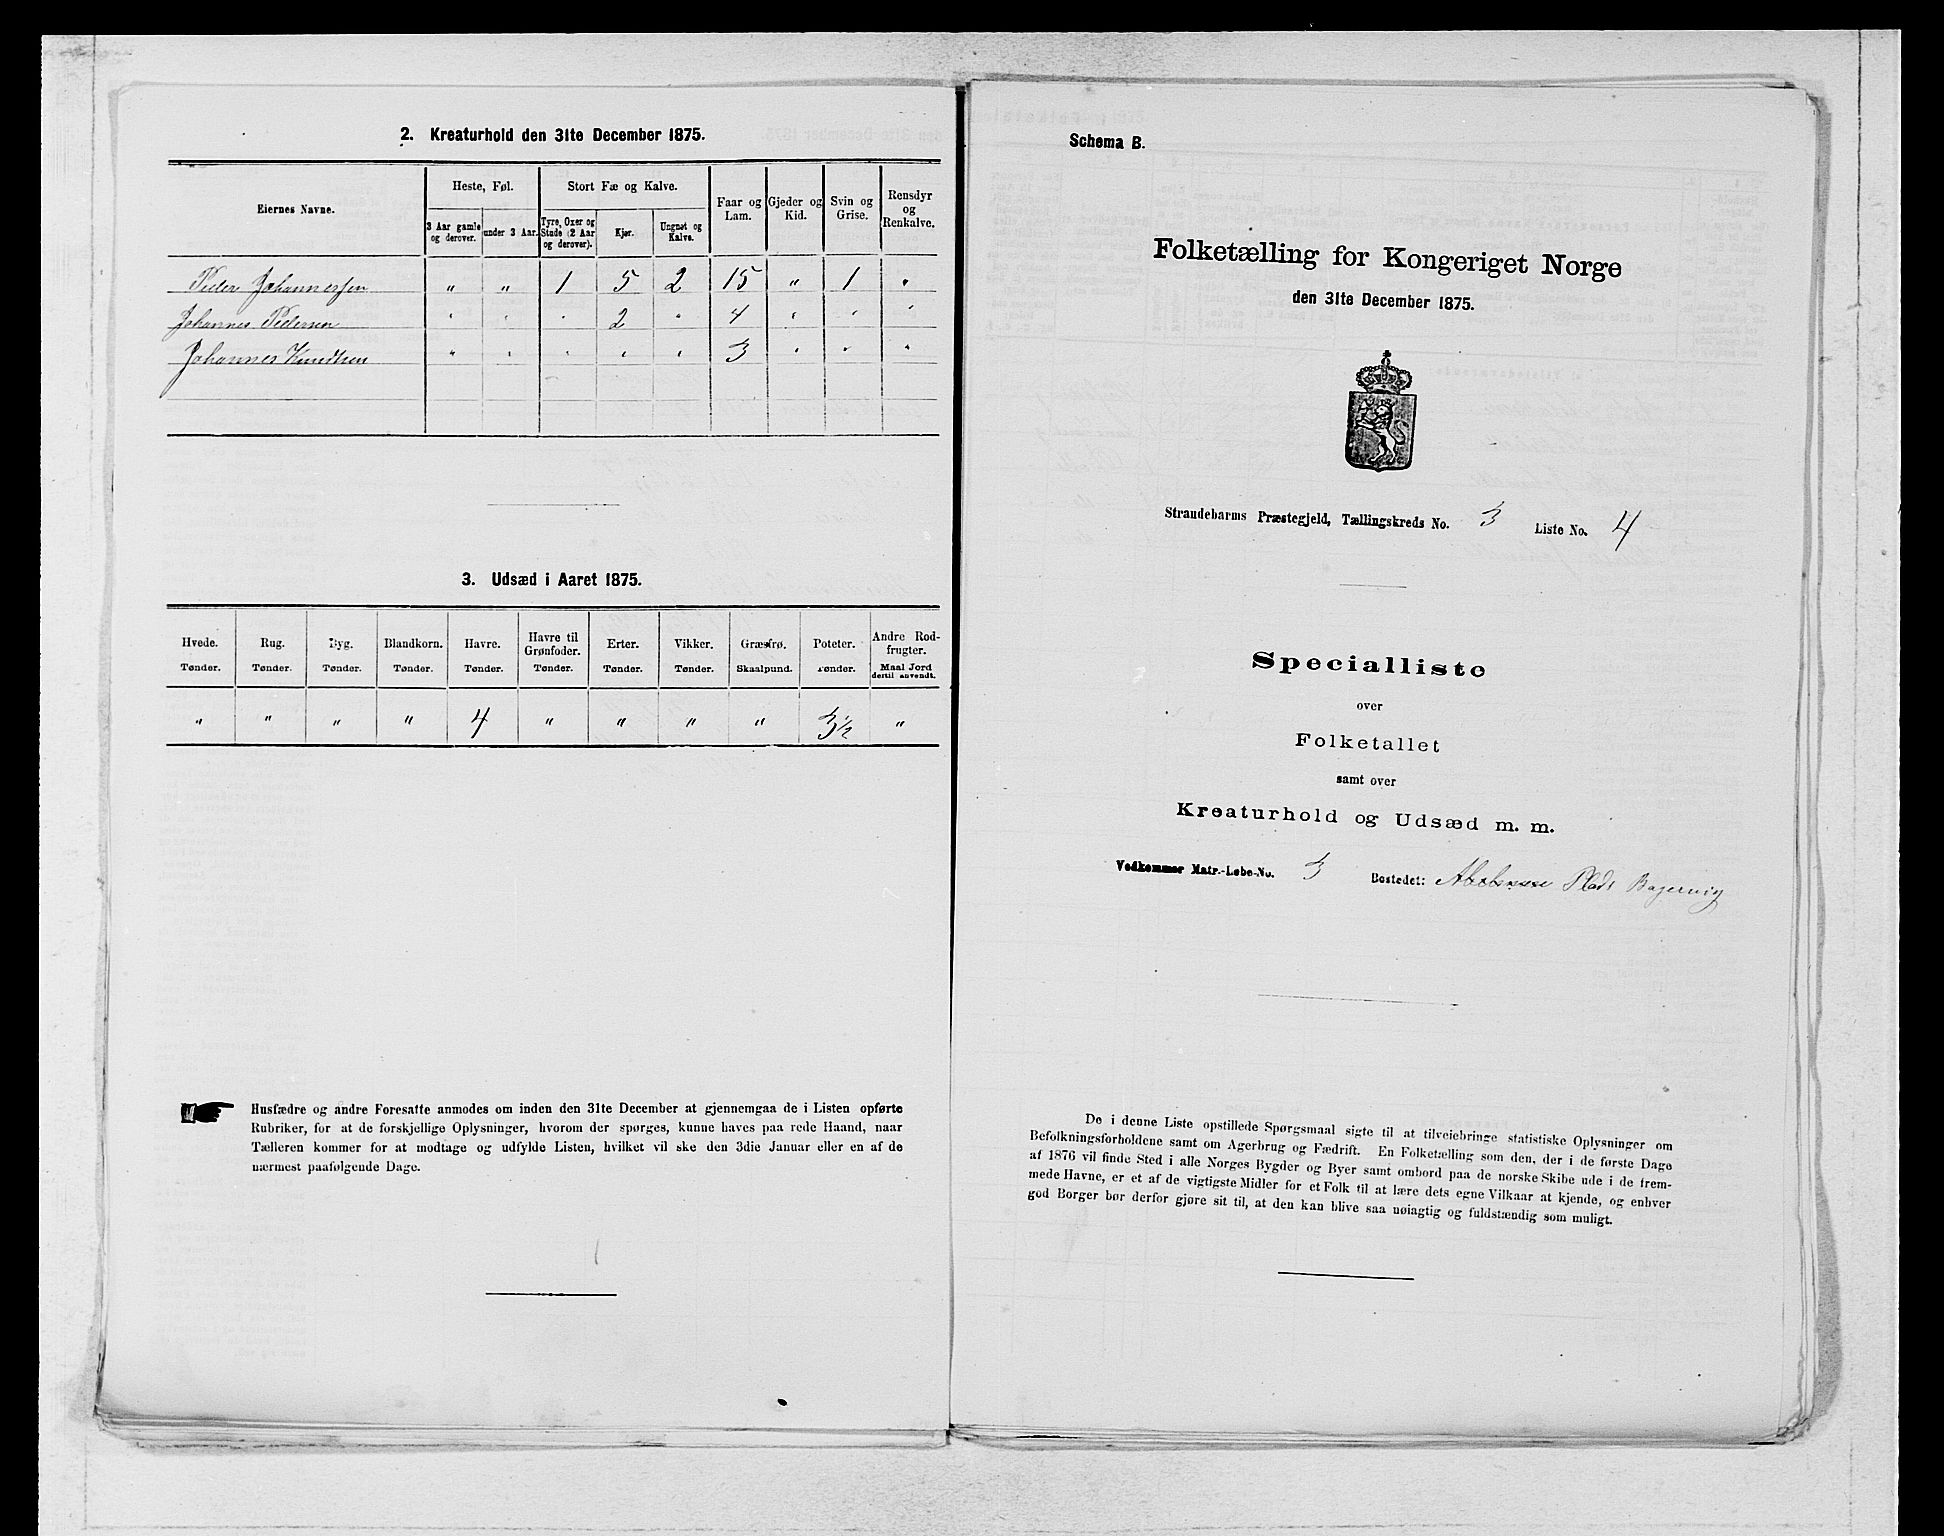 2. Kreaturhold den 31te December 1875.
Eiernes Navne.
Heste, Føl.
3 Aar gamle og derover.
under 3 Aar.
Stort Fæ og Kalve.
Tyre, Oxer og Stude (2 Aar og derover).
Kjør.
Ungnøt og Kalve.
Faar og Lam.
Gjeder og Kid.
Svin og Grise.
Rensdyr og Renkalve.
Peder Johannessen " " 1 5 2 15 " 1 "
Johannes Pedersen " " " 2 " 4 " " "
Johannes Knudsen " " " " " 3 " " "
3. Udsæd i Aaret 1875.
Hvede. Tønder.
Rug. Tønder.
Byg. Tønder.
Blandkorn. Tønder.
Havre. Tønder.
Havre til Grønfoder. Tønder.
Erter. Tønder.
Vikker. Tønder.
Græsfrø. Skaalpund.
Poteter. Tønder.
Andre Rodfrugter. Maal Jord dertil anvendt.
" " " " 4 " " " " 3 1/2 "
Husfædre og andre Foresatte anmodes om inden den 31te December at gjennemgaa de i Listen opførte
Rubriker, for at de forskjellige Oplysninger, hvorom der spørges, kunne haves paa rede Haand, naar
Tælleren kommer for at modtage og udfylde Listen, hvilket vil ske den 3die Januar eller en af de
nærmest paafølgende Dage.
Schema B.
Folketælling for Kongeriget Norge
den 31te December 1875.
Strandebarms Præstegjeld, Tællingskreds No. 3 Liste No. 4
Specialliste
over
Folketallet
samt over
Kreaturhold og Udsæd m. m.
Vedkommer Matr.-Løbe-No. 3 Bostedet: Plads
De i denne Liste opstillede Spørgsmaal sigte til at tilveiebringe statistiske Oplysninger om
Befolkningsforholdene samt om Agerbrug og Fædrift. En Folketælling som den, der i de første Dage
af 1876 vil finde Sted i alle Norges Bygder og Byer samt ombord paa de norske Skibe ude i de frem-
mede Havne, er et af de vigtigste Midler for et Folk til at lære dets egne Vilkaar at kjende, og enhver
god Borger bør derfor gjøre sit til, at den kan blive saa nøiagtig og fuldstændig som muligt.